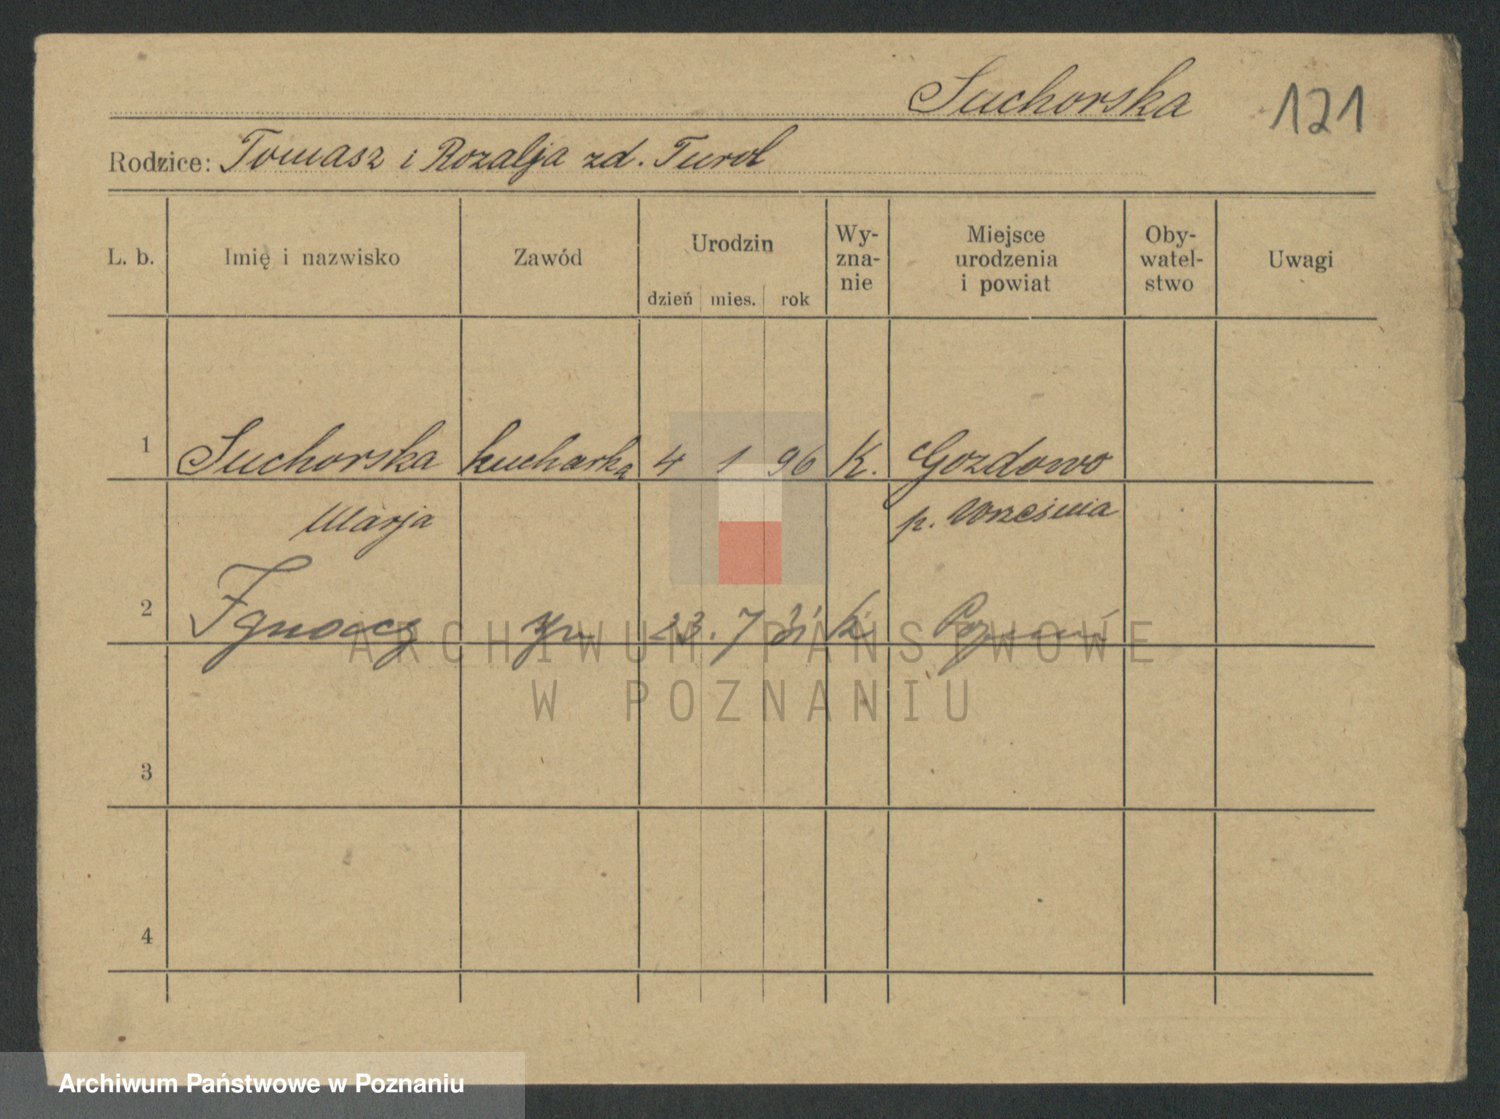 Suchorska 121
Rodzice: Tomasz i Rozalja zd. Turol
L. b. Imię i nazwisko Zawód Urodzin dzień mies. rok Wy-zna-nie Miejsce urodzenia i powiat Oby-watel-stwo Uwagi
1 Suchorska kucharka 4 1 96 K. Gozdowo
Marja p. Września
2 Ignacy 23. 7 31 k Poznań
ARCHIWUM PAŃSTWOWE
W POZNANIU
3
4
Archiwum Państwowe w Poznaniu